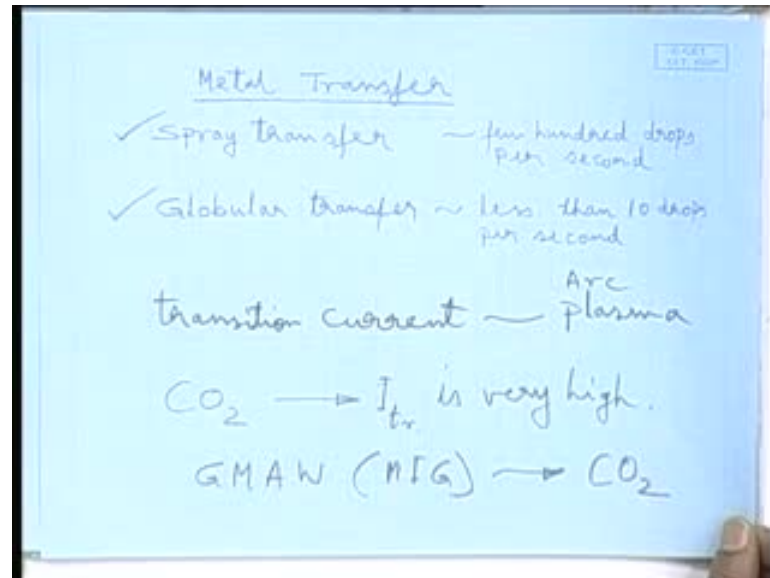 Metal Transfer
✓ Spray transfer ~ few hundred drops
per second
✓ Globular transfer ~ less than 10 drops
per second
Arc
transition current — plasma
CO₂ → I_tr is very high.
GMAW (MIG) → CO₂